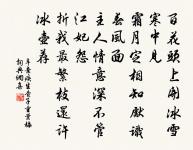 百花頭上開冰雪
寒中見
霜月定相知先識
春風面
主人情意深不管
江妃怨
折我最繁枝還許
冰壺荐
辛棄疾生查子重葉梅